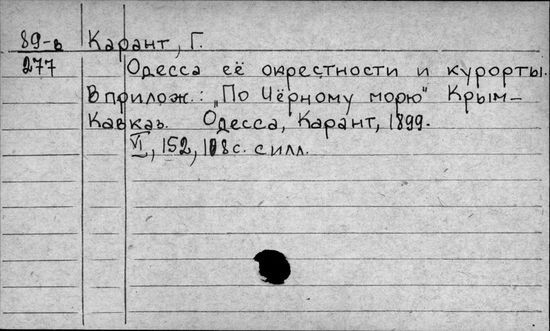 89-в Карант, Г.
277 Одесса её окрестности и курорты.
В прилож.: „По Чёрному морю" Крым-
Кавказ. Одесса, Карант, 1899.
VI, 152, 118 с. с илл.